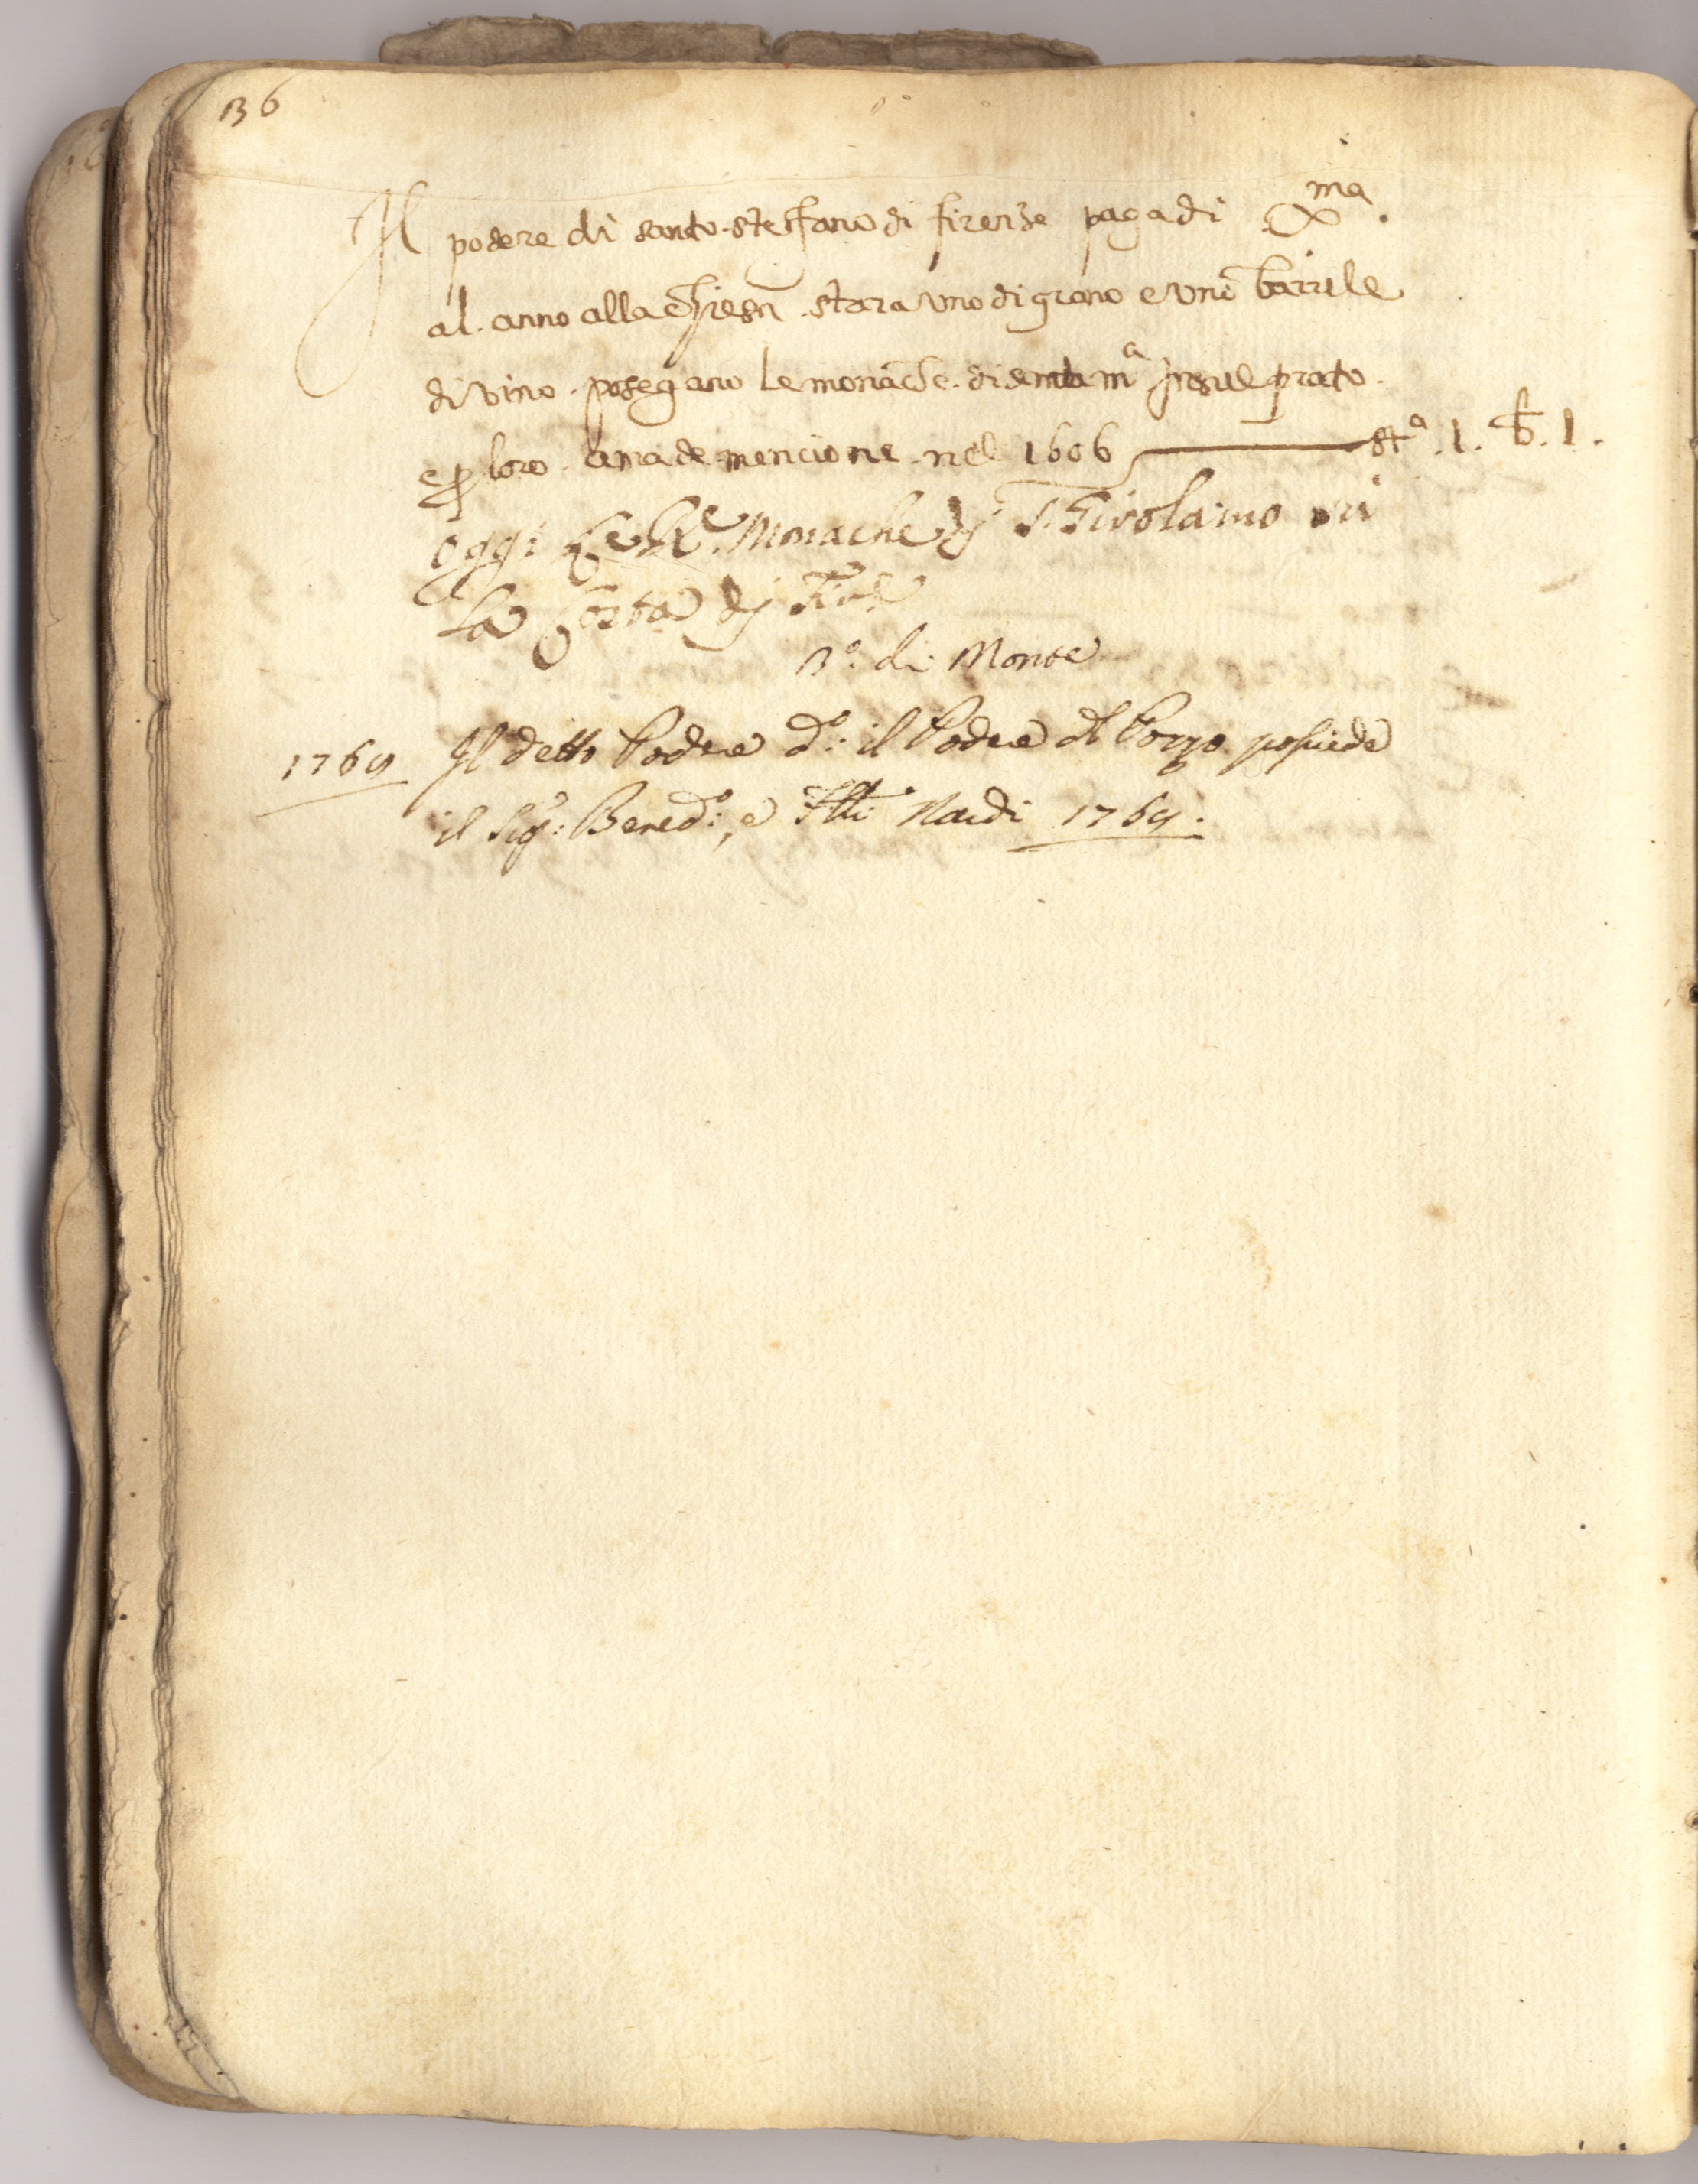 136
Il podere di santo steffano di firenze paga di Xma.
al. anno alla chiesa. stara uno di grano e uno barrile
di vino. posegano le monache. di santa ma in sul prato.
e p loro. nel 1606 sta. 1. b. 1.
Oggi Monache di S. Girolamo
la Costa di
no. di Monte
1769 Il detto Podere do: il Podere del Pozzo possiede
il Sigr: Bened:, e Flli Nardi 1769.